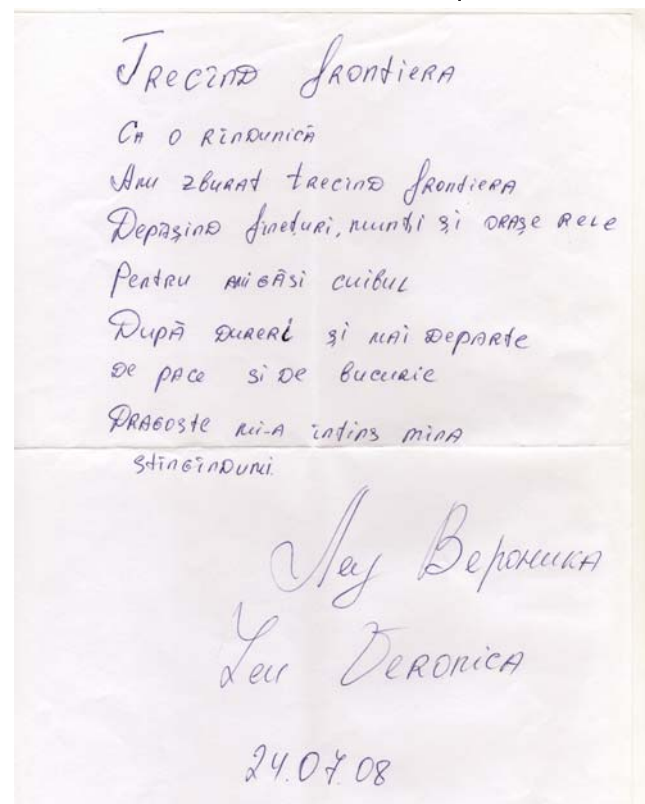 Trecînd frontiera
Ca o rîndunică
Am zburat trecînd frontiera
Depăşind fineţuri, munţi şi oraşe rele
Pentru amigăsi cuibul
După dureri şi mai departe
de pace si de bucurie
Dragoste mi-a intins mina
stingîndumi
Леу Вероника
Leu Veronica
24.07.08